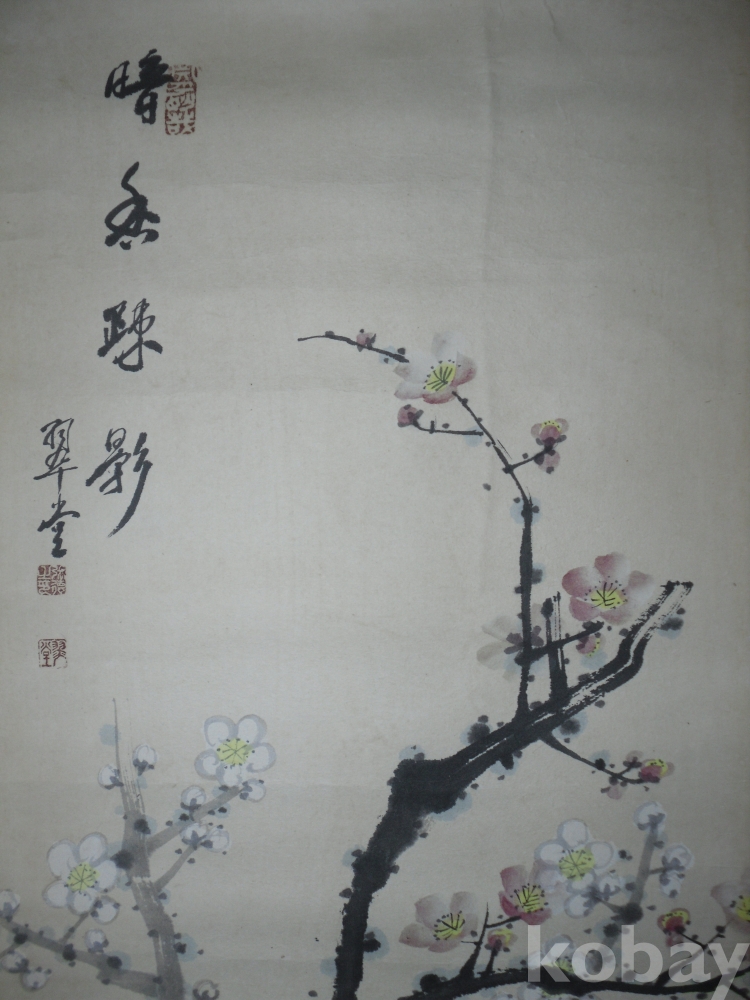 暗香疎影
翠堂
kobay